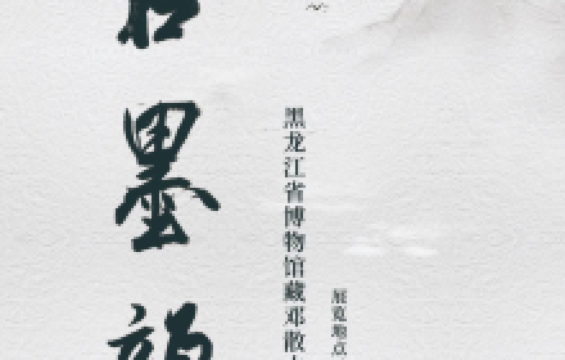 墨
黑龙江省博物馆藏邓散
展览地点